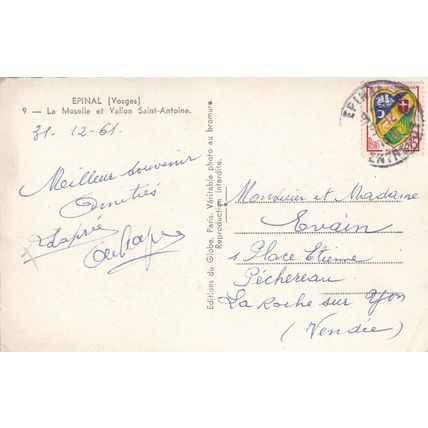 EPINAL (Vosges)
9 — La Moselle et Vallon Saint-Antoine.
31-12-61.
Meilleur souvenir
Amitiés
Editions du Globe, Paris. Véritable photo au bromure.
Reproduction interdite.
EPINAL
Monsieur et Madame
Evain
1 Place Etienne
Péchereau
La Roche sur Yon
(Vendée)